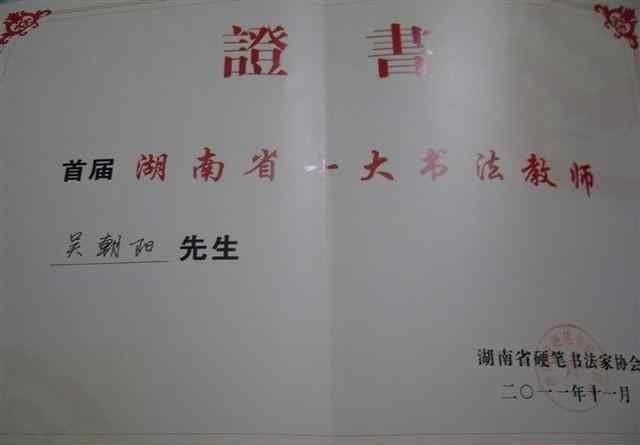 證書
首届 湖南省十大书法教师
吴朝阳 先生
湖南省硬笔书法家协会
二〇一一年十一月